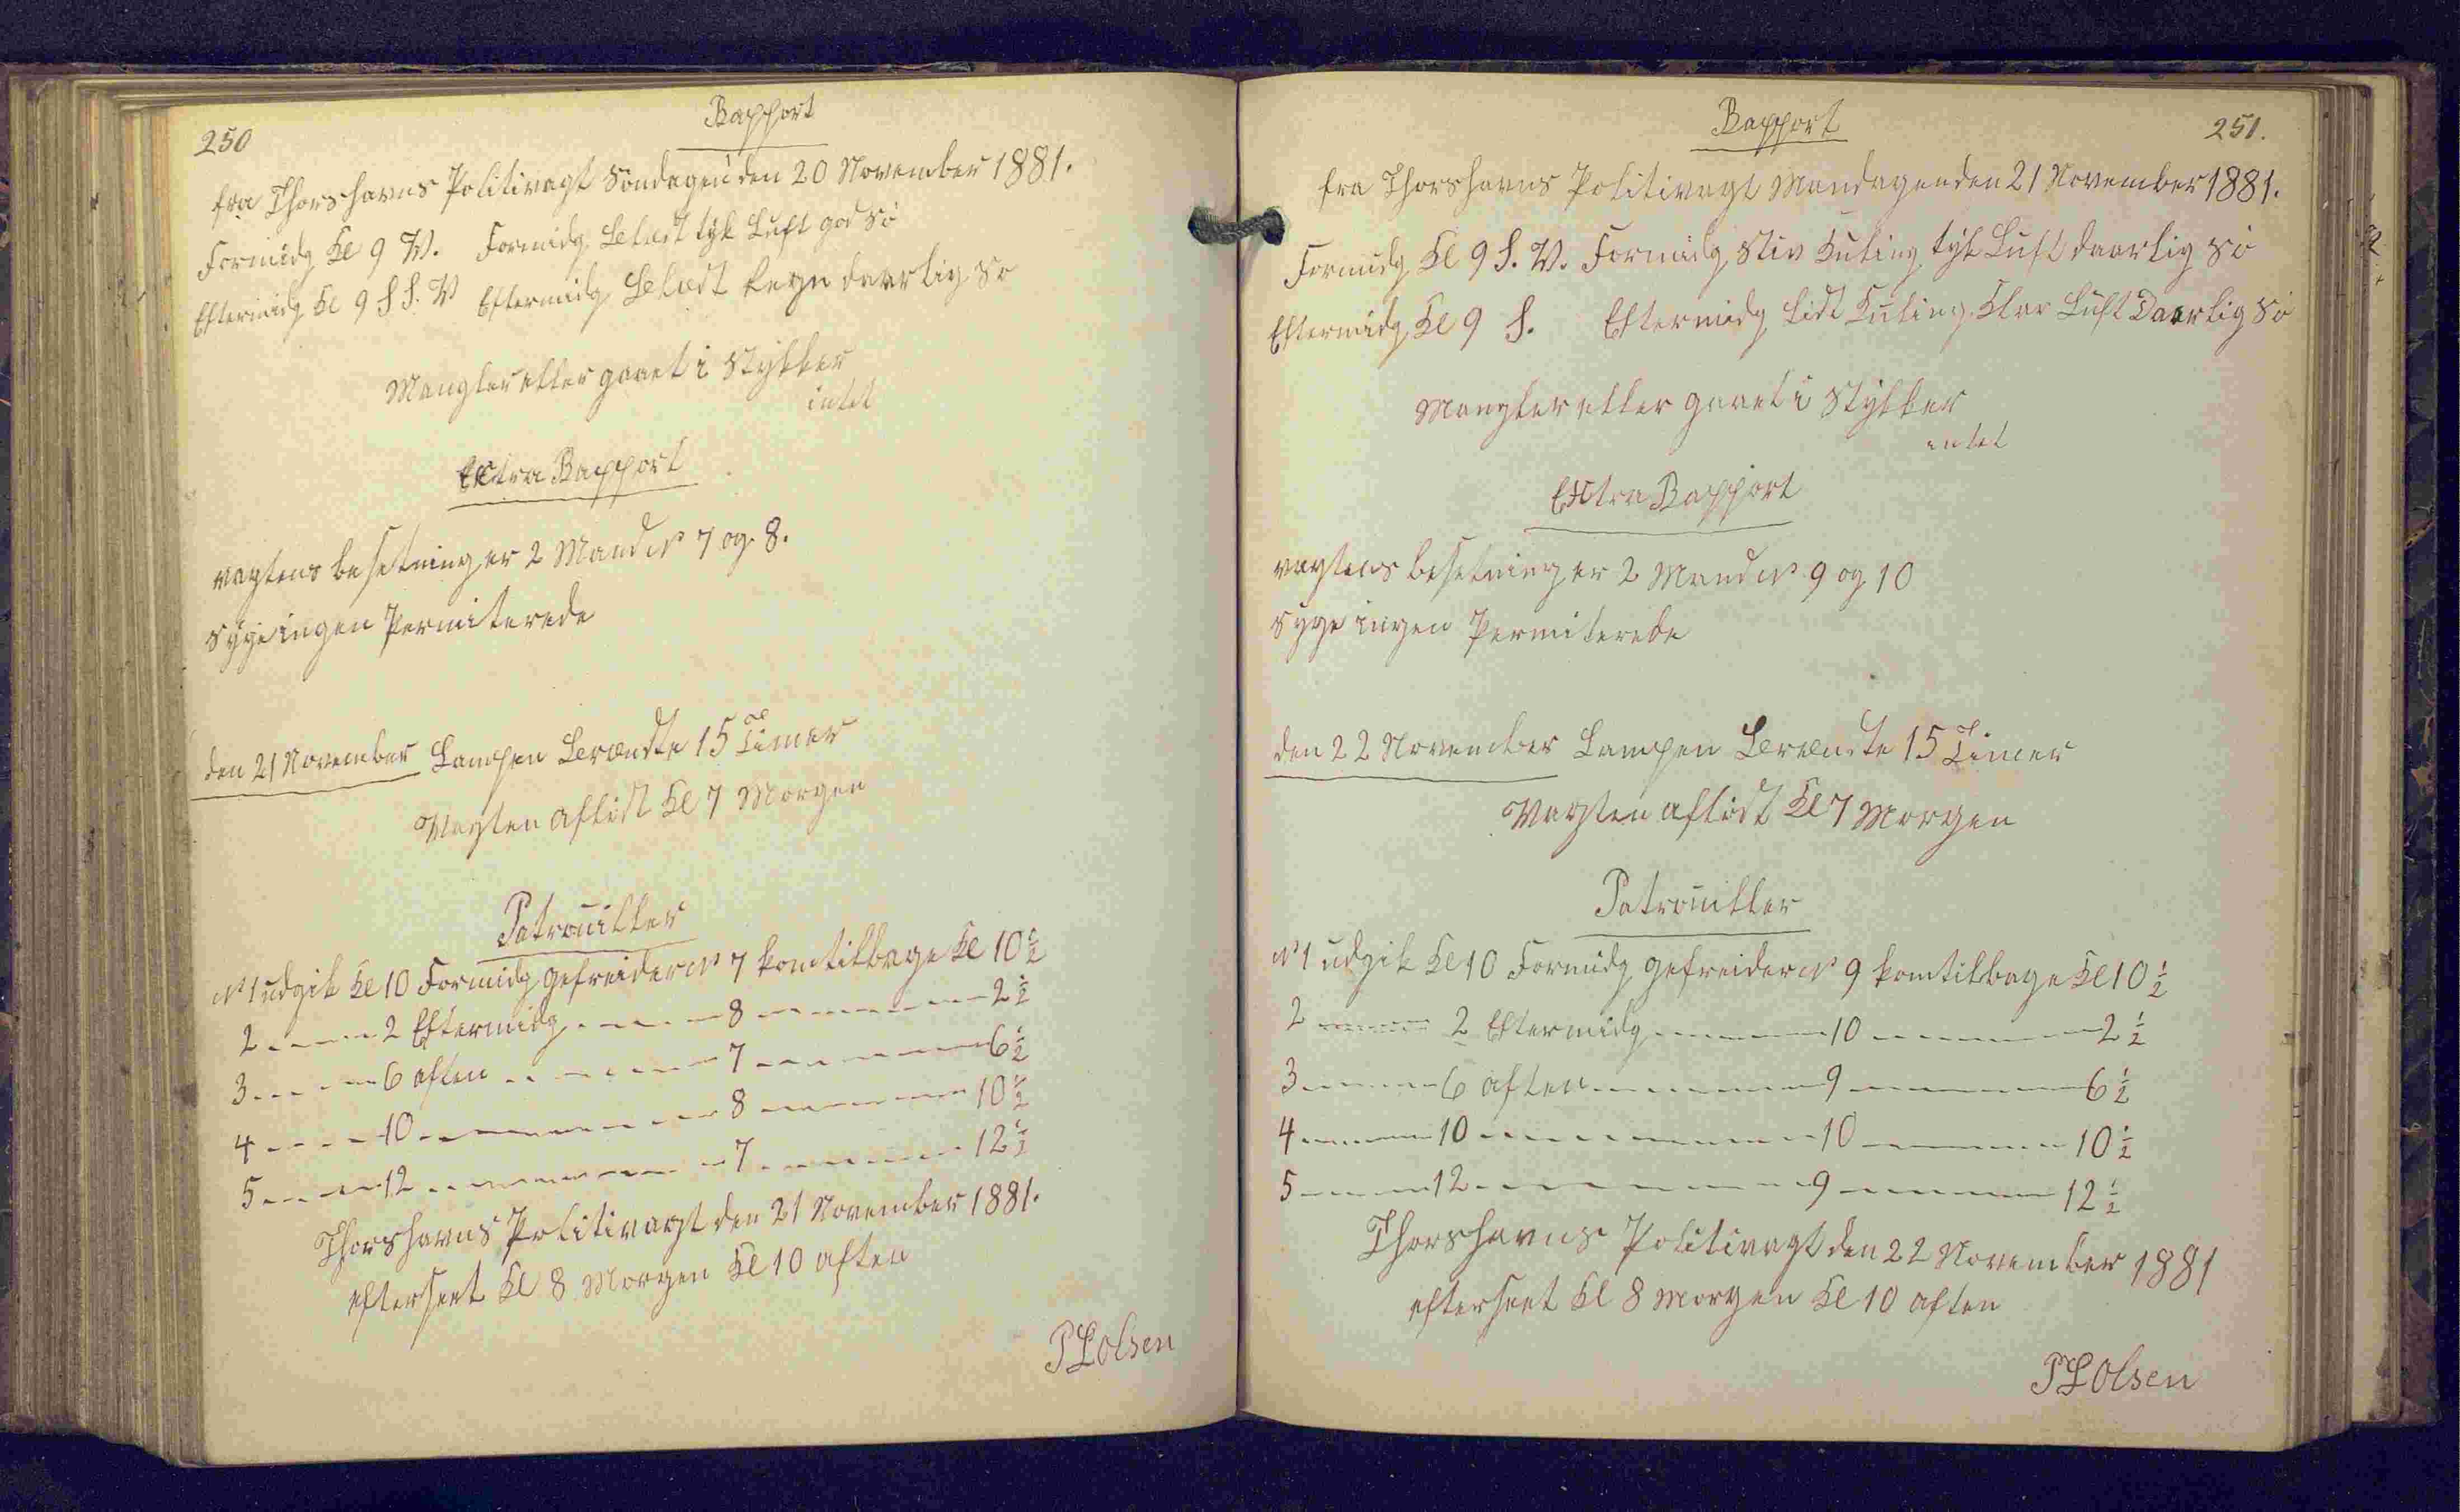 250
Rapport
fra Thorshavns Politivagt Søndagen den 20 November 1881.
Formidg Kl 9 W. Formidg Blæst tyk Luft god Sø
Eftermidg Kl 9 S S. W Eftermidg Blæst Regn daarlig Sø
Mangler eller gaaet i Stykker
intet
Extra Rapport
vagtens besetning er 2 Mand № 7 og 8.
syge ingen Permiterede
den 21 November Lampen Brændte 15 Timer
Vagten afløst Kl 7 Morgen
Patrouiller
№ 1 udgik Kl 10 Formidg gefreider № 7 kom tilbage Kl 10 ½
2 ---- 2 Eftermidg ---- 8 ---- 2 ½
3 ---- 6 aften ---- 7 ---- 6 ½
4 ---- 10 ---- 8 ---- 10 ½
5 ---- 12 ---- 7 ---- 12 ½
Thorshavns Politivagt den 21 November 1881.
efterseet Kl 8 Morgen Kl 10 aften
P L Olsen
Rapport
251.
fra Thorshavns Politivagt Mandagen den 21 November 1881.
Formidg Kl 9 S. W. Formidg Stiv Kuling tyk Luft daarlig Sø
Eftermidg Kl 9 S. Eftermidg lidt Kuling Klar Luft Daarlig Sø
Mangler eller gaaet i Stykker
intet
Extra Rapport
vagtens besetning er 2 Mand № 9 og 10
syge ingen Permiterede
den 22 November Lampen Brændte 15 Timer
Vagten afløst Kl 7 Morgen
Patrouiller
№ 1 udgik Kl 10 Formidg gefreider № 9 kom tilbage Kl 10 ½
2 ---- 2 Eftermidg ---- 10 ---- 2 ½
3 ---- 6 aften ---- 9 ---- 6 ½
4 ---- 10 ---- 10 ---- 10 ½
5 ---- 12 ---- 9 ---- 12 ½
Thorshavns Politivagt den 22 November 1881
efterseet Kl 8 Morgen Kl 10 aften
P L Olsen